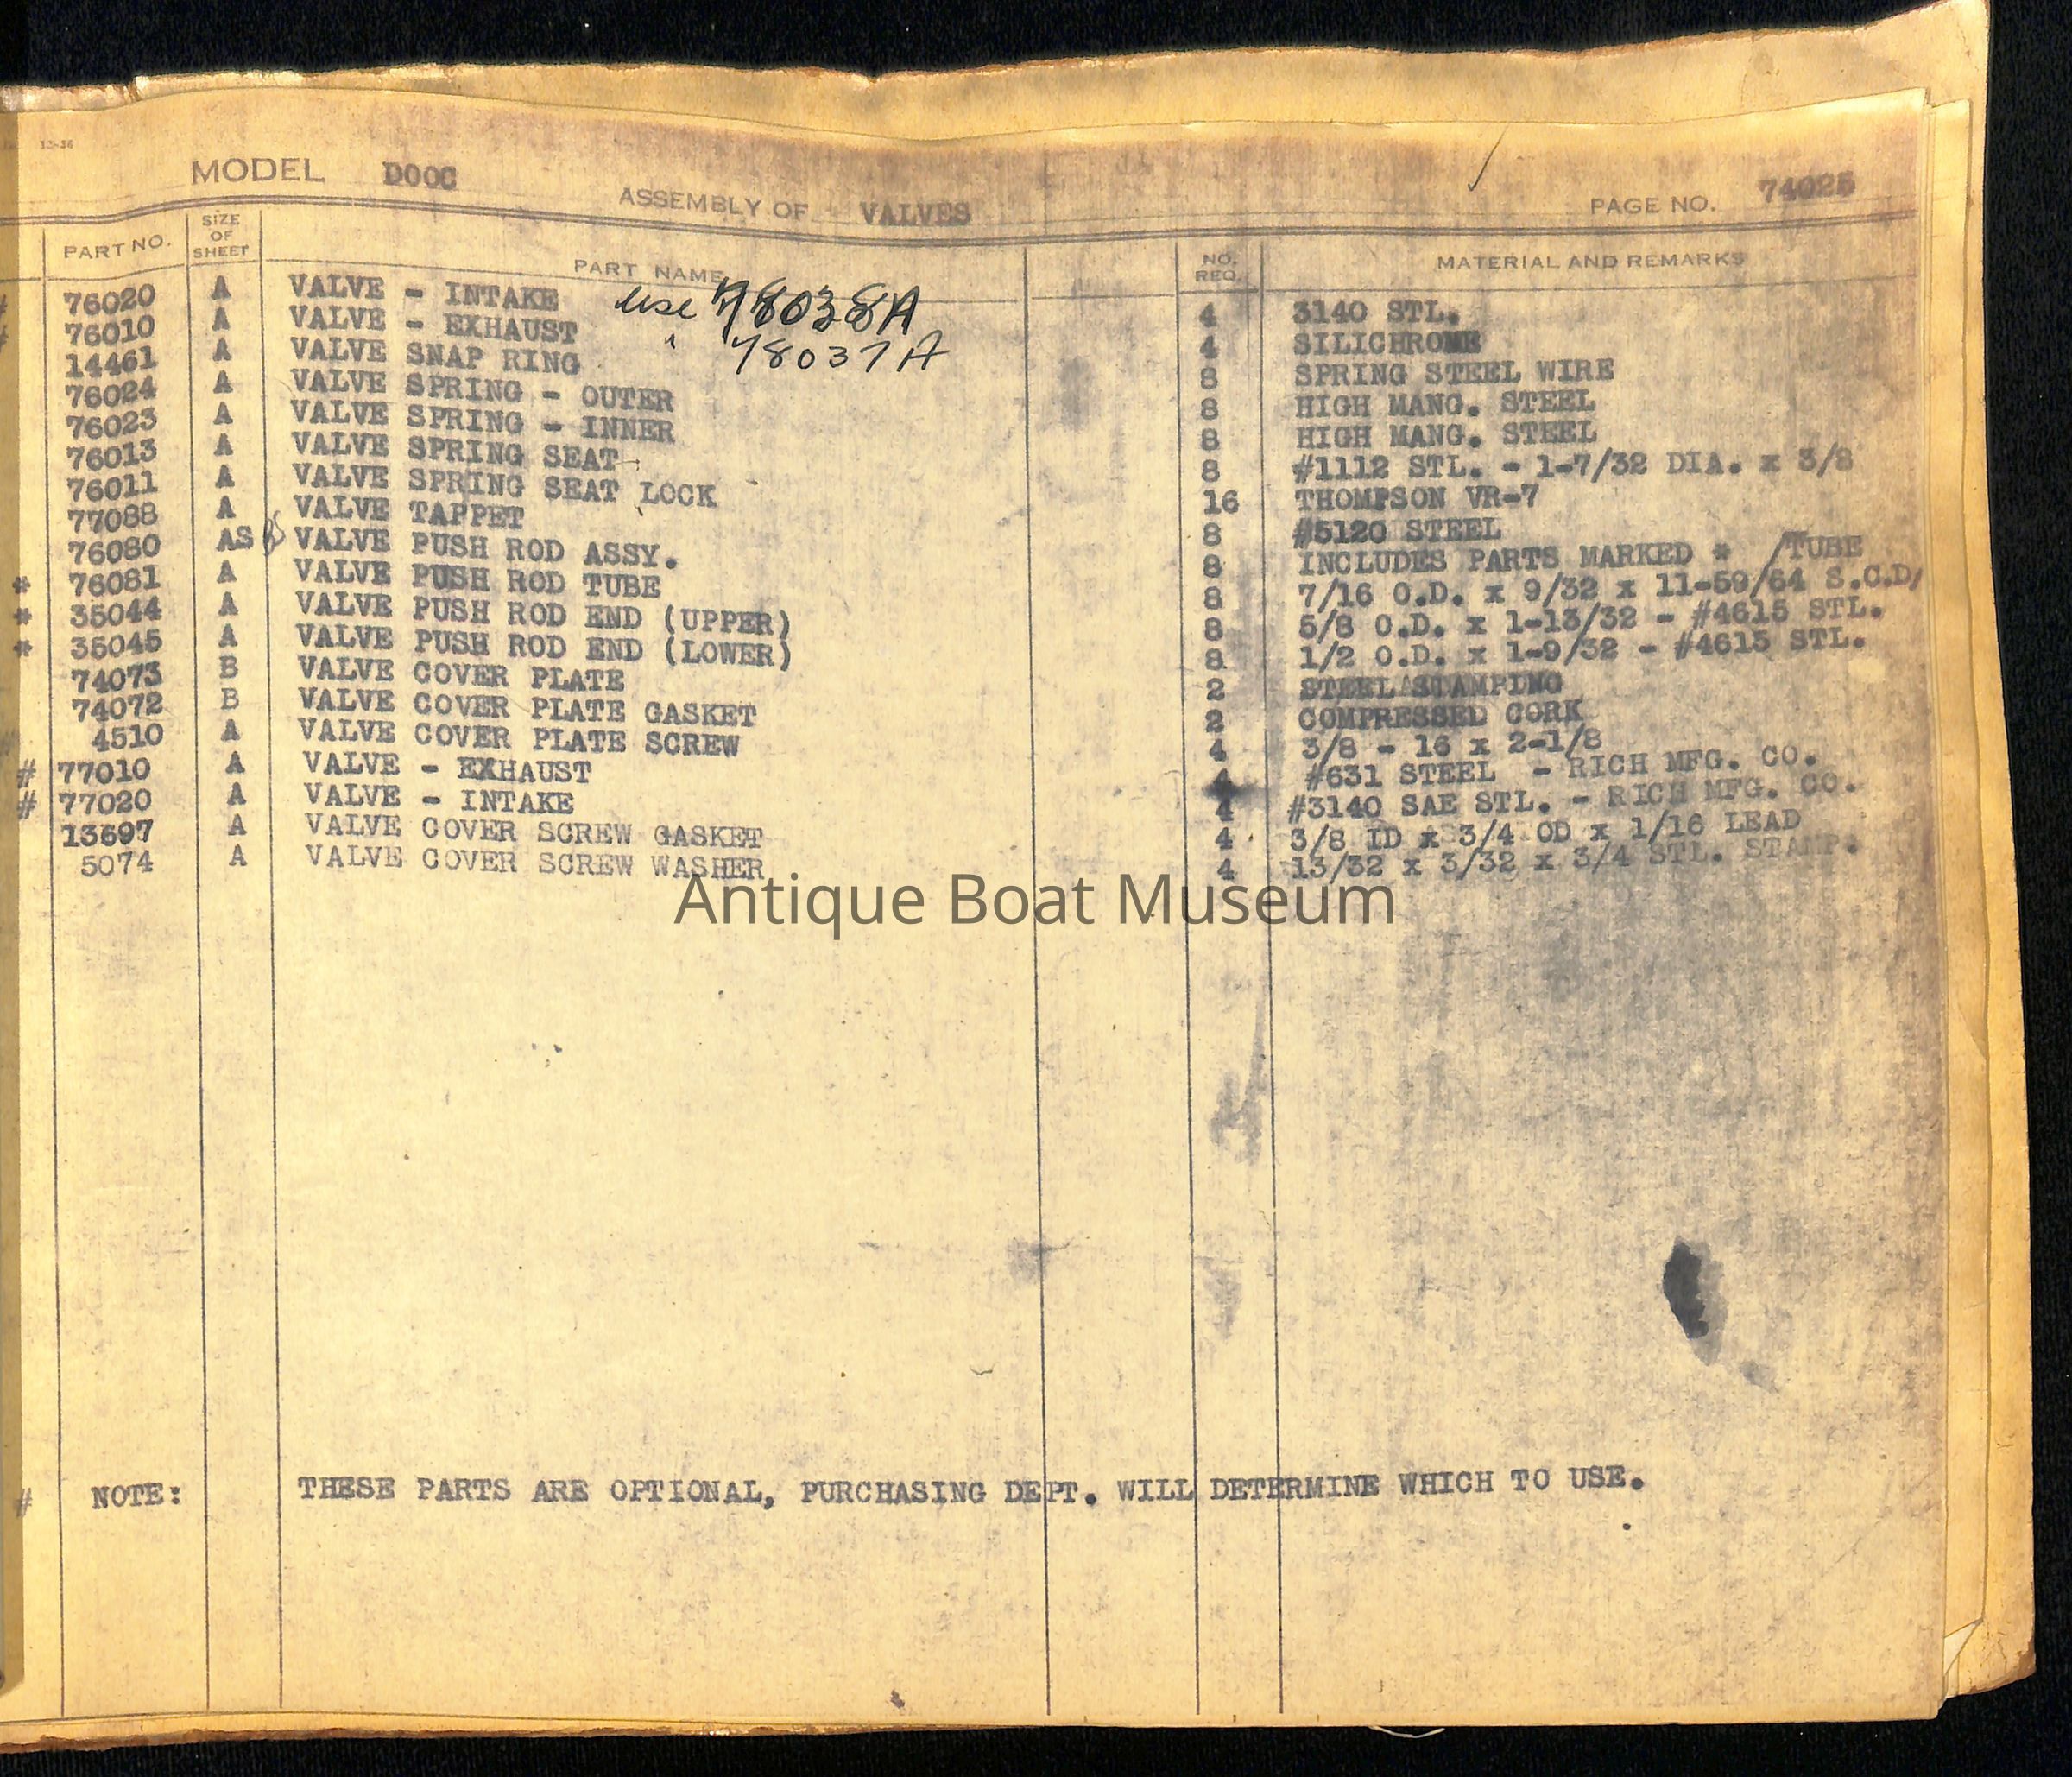 12-36
MODEL DOOC
ASSEMBLY OF VALVES
PAGE NO. 74025
PART NO. SIZE OF SHEET PART NAME NO. REQ. MATERIAL AND REMARKS
# 76020 A VALVE - INTAKE use 78038A 4 3140 STL.
# 76010 A VALVE - EXHAUST " 78037A 4 SILICHROME
14461 A VALVE SNAP RING 8 SPRING STEEL WIRE
76024 A VALVE SPRING - OUTER 8 HIGH MANG. STEEL
76023 A VALVE SPRING - INNER 8 HIGH MANG. STEEL
76013 A VALVE SPRING SEAT 8 #1112 STL. - 1-7/32 DIA. x 3/8
76011 A VALVE SPRING SEAT LOCK 16 THOMPSON VR-7
77088 A VALVE TAPPET 8 #5120 STEEL
76080 AS VALVE PUSH ROD ASSY. 8 INCLUDES PARTS MARKED * /TUBE
* 76081 A VALVE PUSH ROD TUBE 8 7/16 O.D. x 9/32 x 11-59/64 S.C.D/
* 35044 A VALVE PUSH ROD END (UPPER) 8 5/8 O.D. x 1-13/32 - #4615 STL.
* 35045 A VALVE PUSH ROD END (LOWER) 8 1/2 O.D. x 1-9/32 - #4615 STL.
74073 B VALVE COVER PLATE 2 STEEL STAMPING
74072 B VALVE COVER PLATE GASKET 2 COMPRESSED CORK
4510 A VALVE COVER PLATE SCREW 4 3/8 - 16 x 2-1/8
# 77010 A VALVE - EXHAUST 4 #631 STEEL - RICH MFG. CO.
# 77020 A VALVE - INTAKE 4 #3140 SAE STL. - RICH MFG. CO.
13697 A VALVE COVER SCREW GASKET 4 3/8 ID x 3/4 OD x 1/16 LEAD
5074 A VALVE COVER SCREW WASHER 4 13/32 x 3/32 x 3/4 STL. STAMP.
Antique Boat Museum
# NOTE: THESE PARTS ARE OPTIONAL, PURCHASING DEPT. WILL DETERMINE WHICH TO USE.